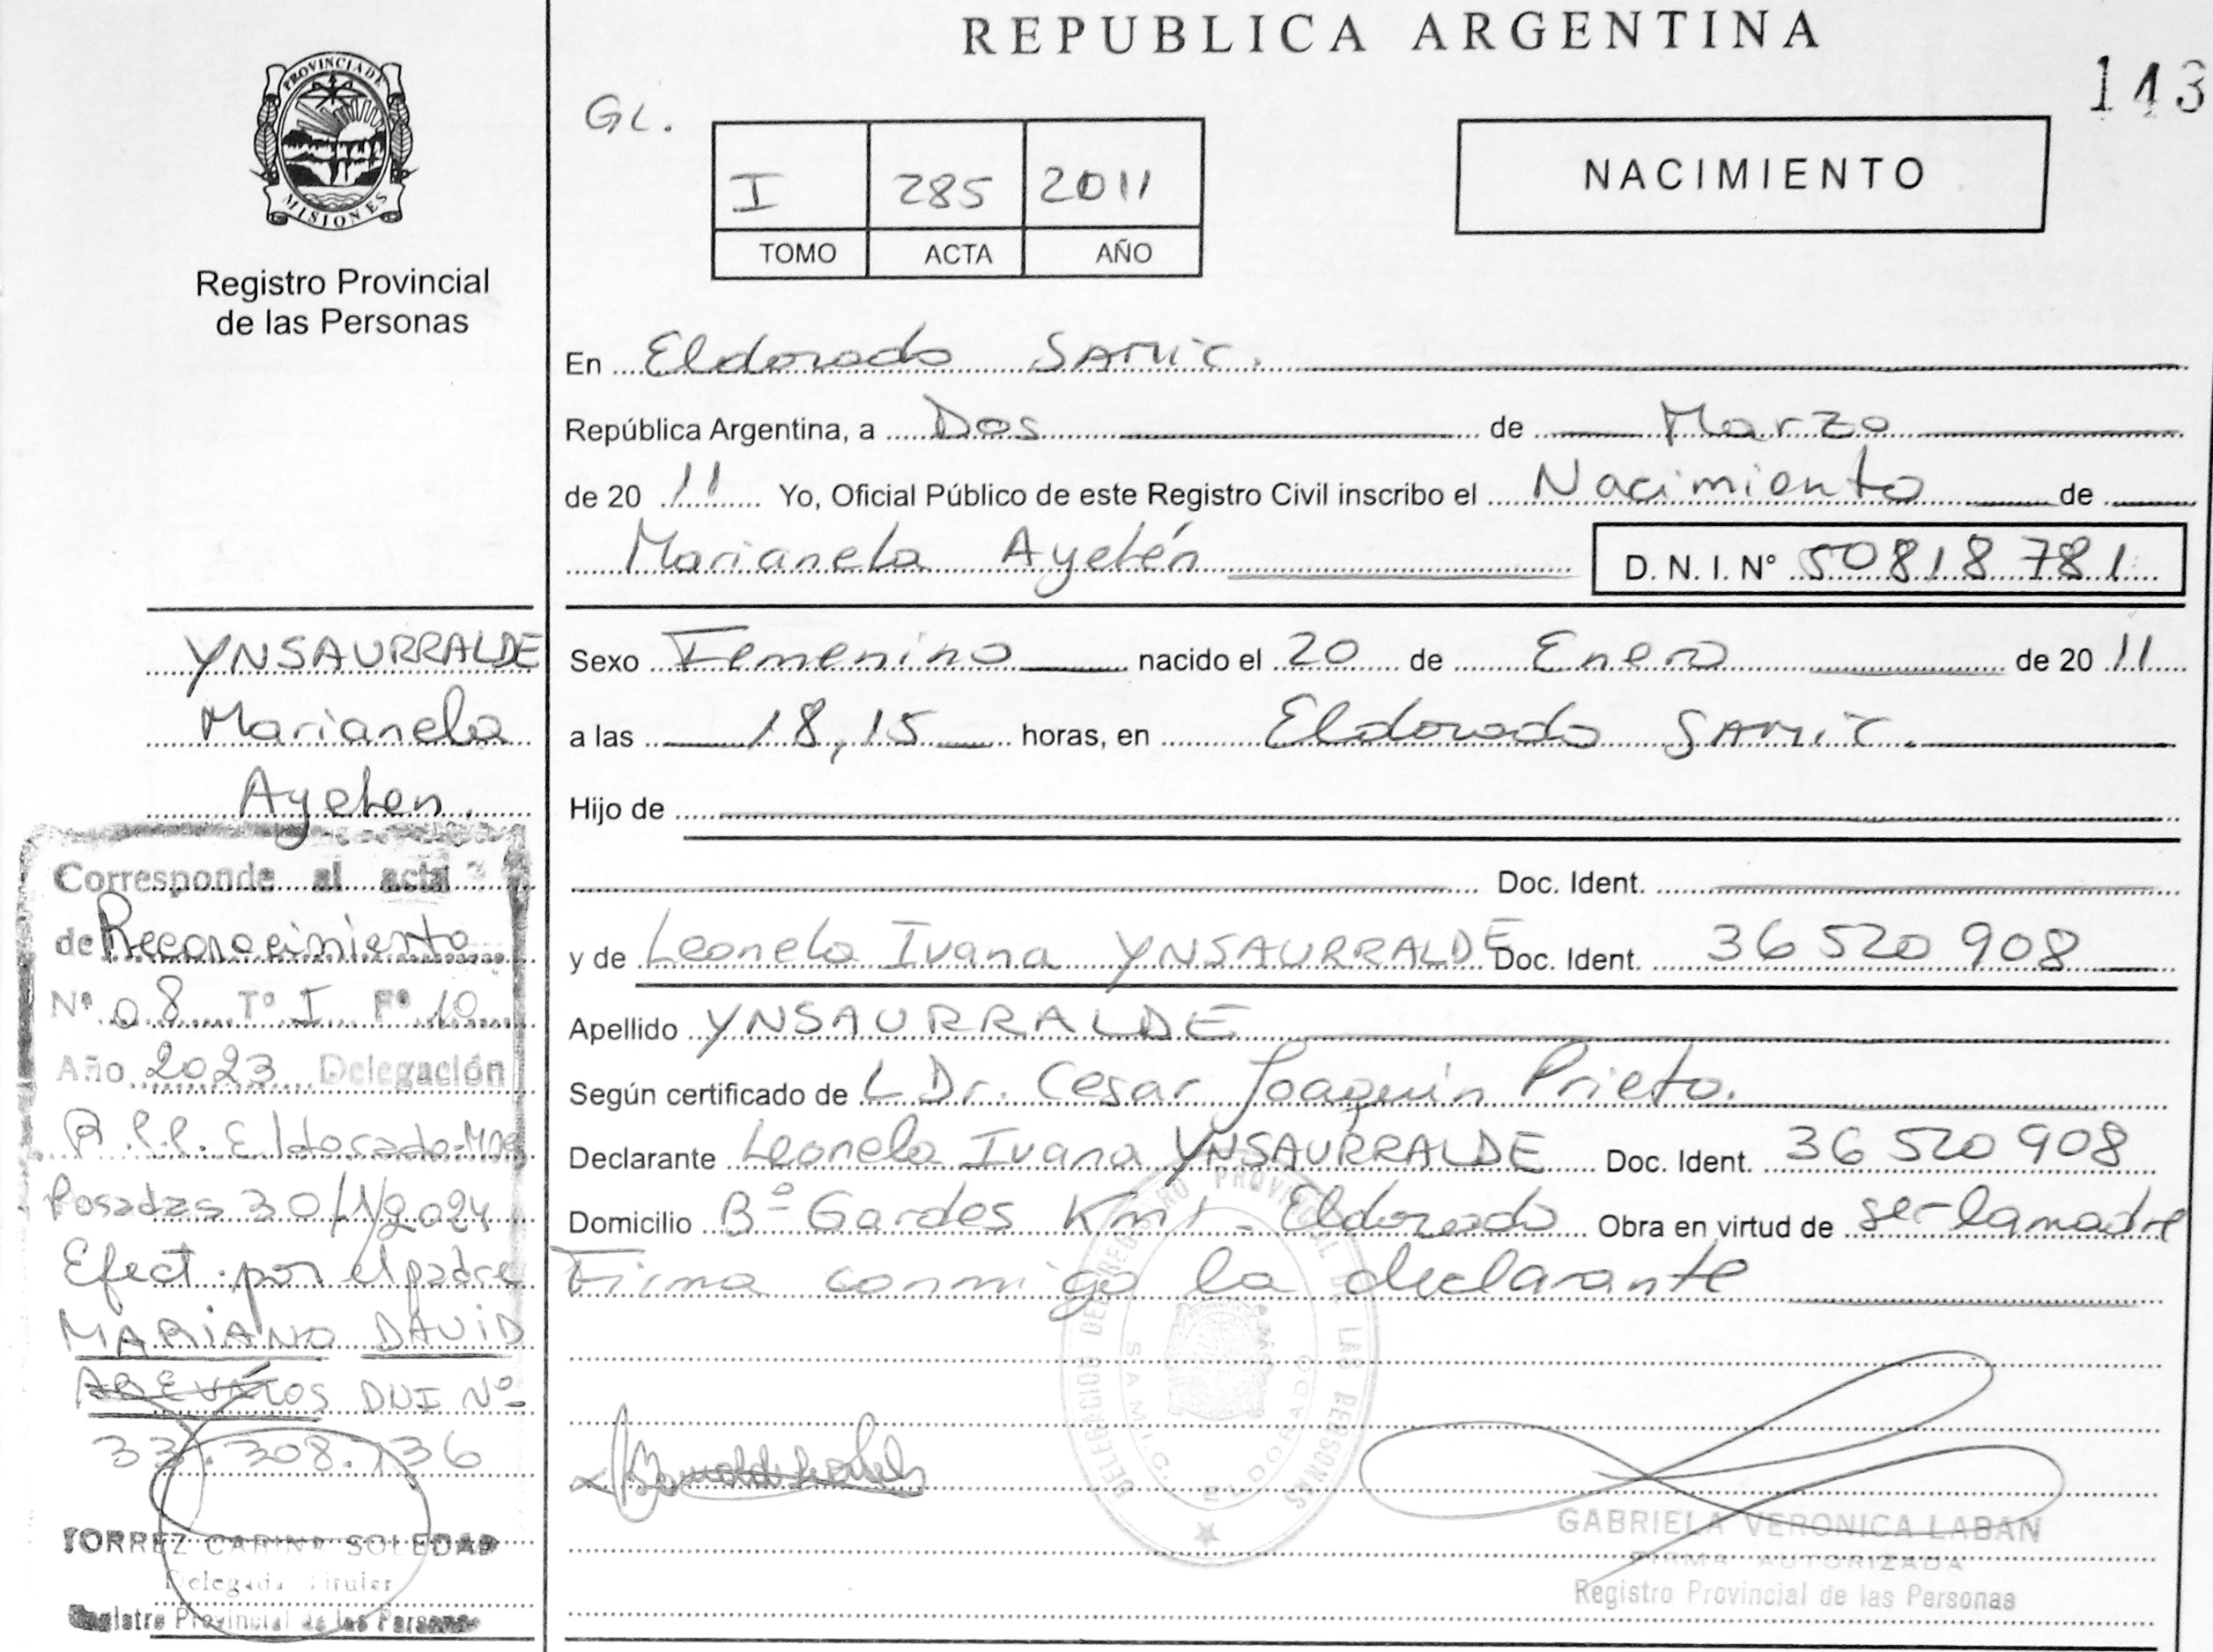 REPUBLICA ARGENTINA
143
PROVINCIA DE
MISIONES
Registro Provincial
de las Personas
GL.
I 285 2011
TOMO ACTA AÑO
NACIMIENTO
En Eldorado SAMIC.
República Argentina, a Dos de Marzo
de 20 11 Yo, Oficial Público de este Registro Civil inscribo el Nacimiento de
Marianela Ayelén D. N. I. Nº 50818781
Sexo Femenino nacido el 20 de Enero de 20 11
a las 18,15 horas, en Eldorado SAMIC.
Hijo de
Doc. Ident.
y de Leonela Ivana YNSAURRALDE Doc. Ident. 36 520 908
Apellido YNSAURRALDE
Según certificado de L Dr. Cesar Joaquin Prieto.
Declarante Leonela Ivana YNSAURRALDE Doc. Ident. 36 520 908
Domicilio Bº Gardes Km 1 - Eldorado Obra en virtud de ser la madre
Firma conmigo la declarante
DELEGACION DEL REGISTRO PROVINCIAL DE LAS PERSONAS
SAMIC. ELDORADO
GABRIELA VERONICA LABAN
FIRMA AUTORIZADA
Registro Provincial de las Personas
YNSAURRALDE
Marianela
Ayelen.
Corresponde al acta
de Reconocimiento
Nº 08 Tº I Fº 10
Año 2023 Delegación
R.P.P. Eldorado-Mnes
Posadas 30/1/2024
Efect. por el padre
MARIANO DAVID
DNI Nº
33.308.736
TORREZ CARINA SOLEDAD
Delegada Titular
Registro Provincial de las Personas